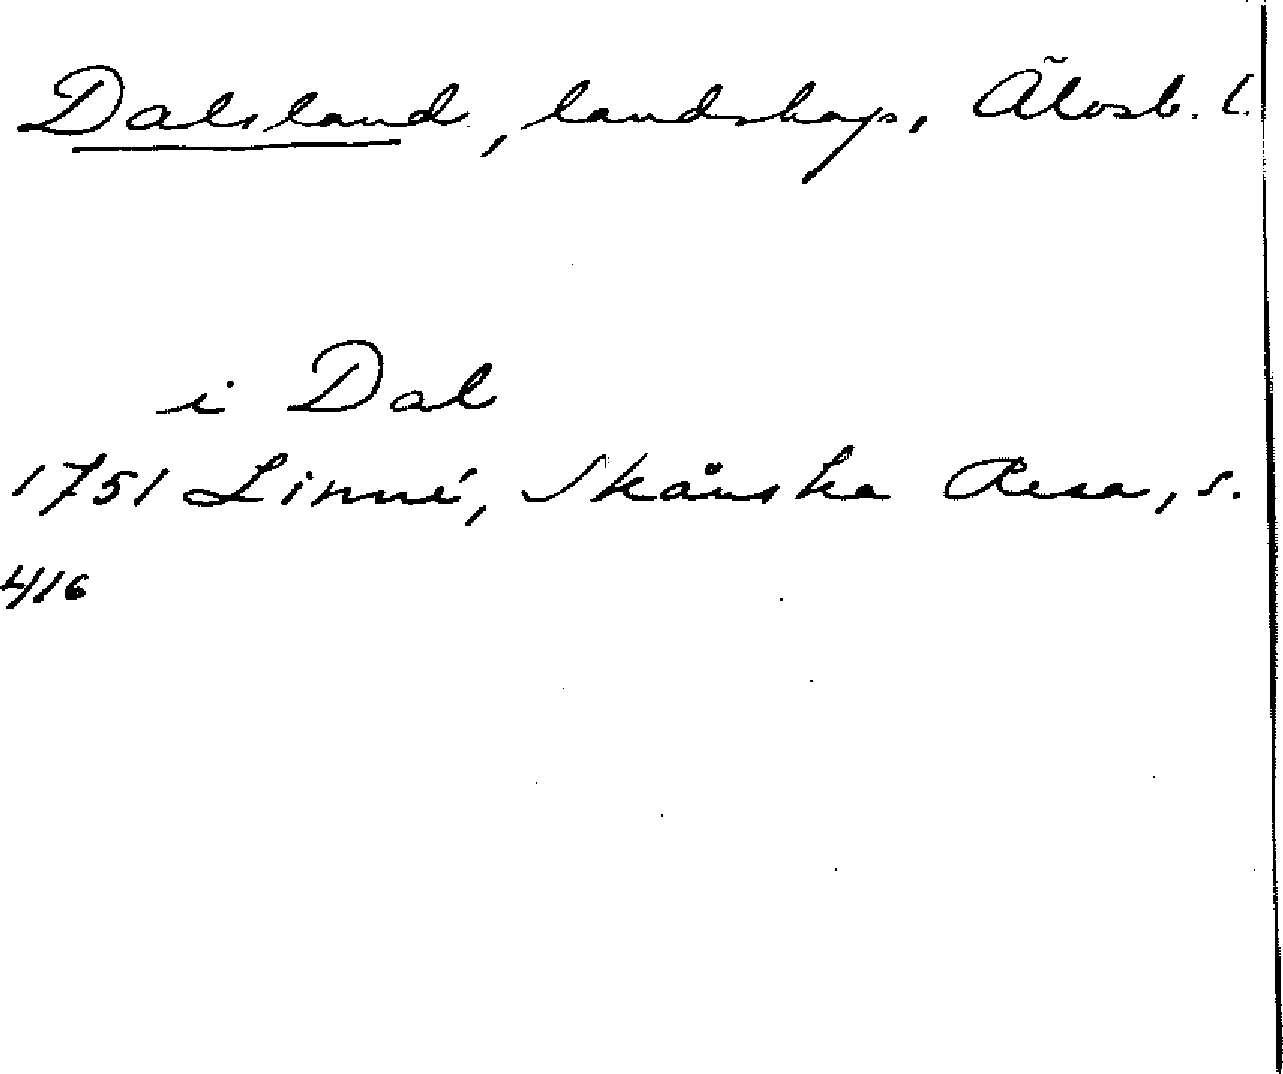 Dalsland, landskap, Älvsb. l.
i Dal
1751 Linné, Skånska Resa, s.
416